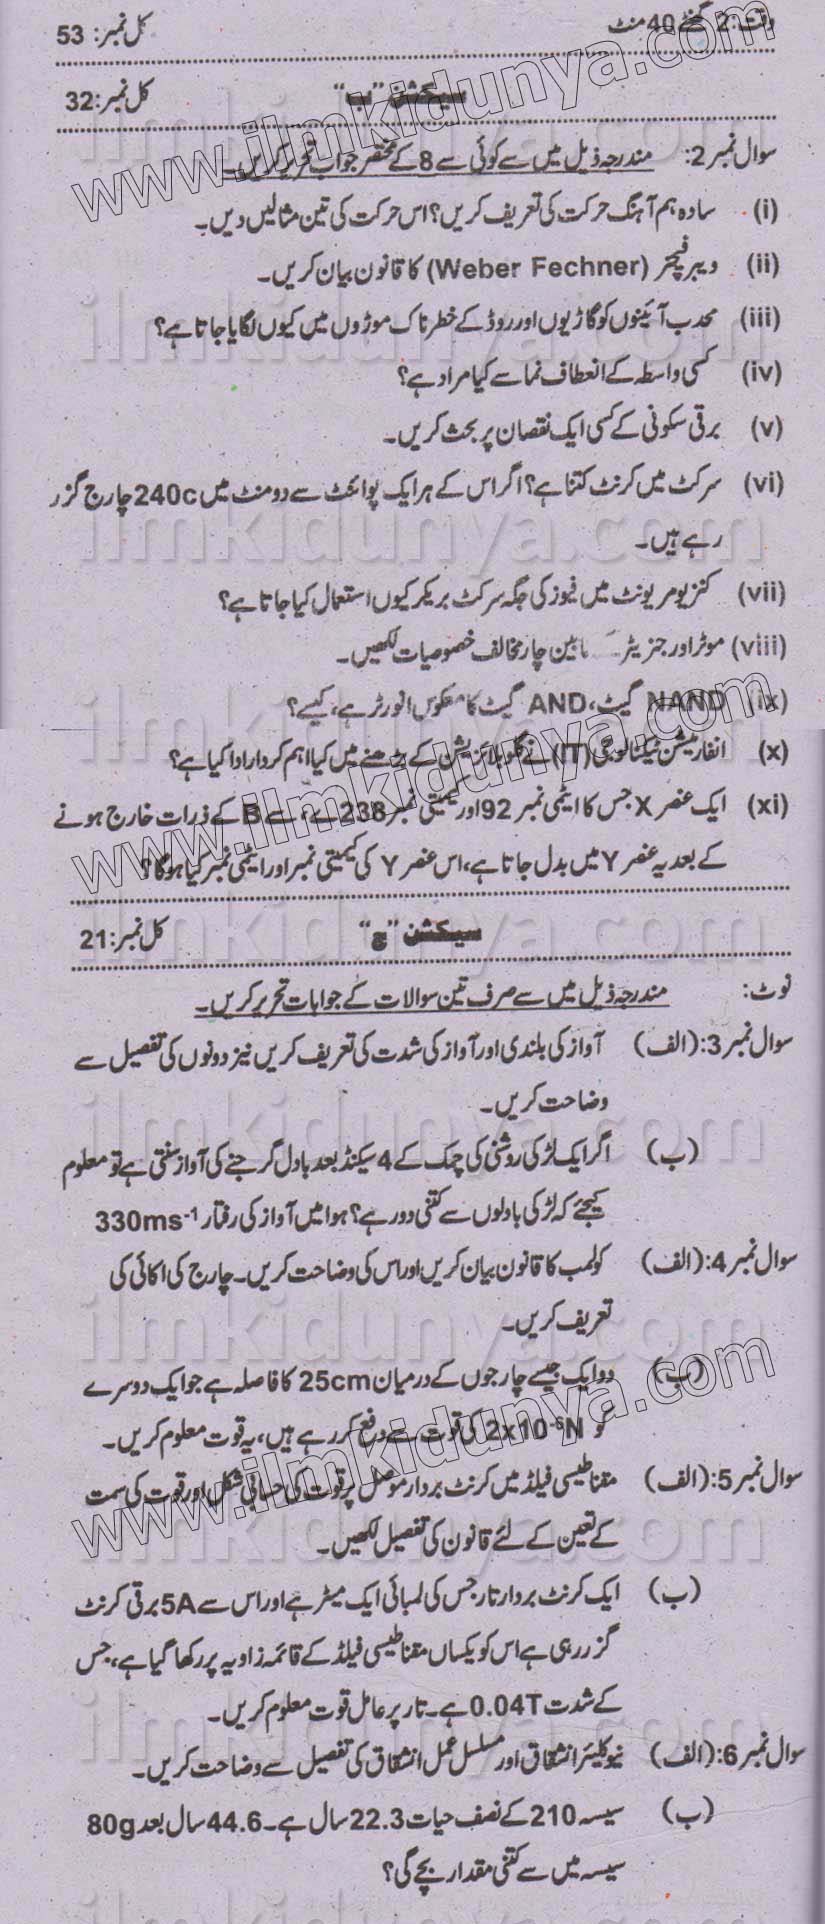 وقت: 2 گھنٹے 40 منٹ کل نمبر: 53
سیکشن "ب" کل نمبر: 32
سوال نمبر 2: مندرجہ ذیل میں سے کوئی سے 8 کے مختصر جواب تحریر کریں۔
(i) سادہ ہم آہنگ حرکت کی تعریف کریں؟ اس حرکت کی تین مثالیں دیں۔
(ii) ویبر فیچر (Weber Fechner) کا قانون بیان کریں۔
(iii) محدب آئینوں کو گاڑیوں اور روڈ کے خطرناک موڑوں میں کیوں لگایا جاتا ہے؟
(iv) کسی واسطہ کے انعطاف نما سے کیا مراد ہے؟
(v) برقی سکونی کے کسی ایک نقصان پر بحث کریں۔
(vi) سرکٹ میں کرنٹ کتنا ہے؟ اگر اس کے ہر ایک پوائنٹ سے دو منٹ میں 240c چارج گزر
رہے ہیں۔
(vii) کنزیومر یونٹ میں فیوز کی جگہ سرکٹ بریکر کیوں استعمال کیا جاتا ہے؟
(viii) موٹر اور جنریٹر کے مابین چار مخالف خصوصیات لکھیں۔
(ix) NAND گیٹ، AND گیٹ کا معکوس انورٹر ہے، کیسے؟
(x) انفارمیشن ٹیکنالوجی (IT) نے گلوبلائزیشن کے بڑھنے میں کیا اہم کردار ادا کیا ہے؟
(xi) ایک عنصر X جس کا ایٹمی نمبر 92 اور کمیتی نمبر 238 ہے، سے B کے ذرات خارج ہونے
کے بعد یہ عنصر Y میں بدل جاتا ہے، اس عنصر Y کی کمیتی نمبر اور ایٹمی نمبر کیا ہوگا؟
سیکشن "ج" کل نمبر: 21
نوٹ: مندرجہ ذیل میں سے صرف تین سوالات کے جوابات تحریر کریں۔
سوال نمبر 3: (الف) آواز کی بلندی اور آواز کی شدت کی تعریف کریں نیز دونوں کی تفصیل سے
وضاحت کریں۔
(ب) اگر ایک لڑکی روشنی کی چمک کے 4 سیکنڈ بعد بادل گرجنے کی آواز سنتی ہے تو معلوم
کیجئے کہ لڑکی بادلوں سے کتنی دور ہے؟ ہوا میں آواز کی رفتار 330ms⁻¹
سوال نمبر 4: (الف) کولمب کا قانون بیان کریں اور اس کی وضاحت کریں۔ چارج کی اکائی کی
تعریف کریں۔
(ب) دو ایک جیسے چارجوں کے درمیان 25cm کا فاصلہ ہے جو ایک دوسرے
کو 2x10⁻⁶N کی قوت سے دفع کر رہے ہیں، یہ قوت معلوم کریں۔
سوال نمبر 5: (الف) مقناطیسی فیلڈ میں کرنٹ بردار موصل پر قوت کی حسابی شکل اور قوت کی سمت
کے تعین کے لئے قانون کی تفصیل لکھیں۔
(ب) ایک کرنٹ بردار تار جس کی لمبائی ایک میٹر ہے اور اس سے 5A برقی کرنٹ
گزر رہی ہے اس کو یکساں مقناطیسی فیلڈ کے قائمہ زاویہ پر رکھا گیا ہے، جس
کے شدت 0.04T ہے۔ تار پر عامل قوت معلوم کریں۔
سوال نمبر 6: (الف) نیوکلیئر انشقاق اور مسلسل عمل انشقاق کی تفصیل سے وضاحت کریں۔
(ب) سیسہ 210 کے نصف حیات 22.3 سال ہے۔ 44.6 سال بعد 80g
سیسہ میں سے کتنی مقدار بچے گی؟
www.ilmkidunya.com
www.ilmkidunya.com
www.ilmkidunya.com
ilmkidunya.com
ilmkidunya.com
ilmkidunya.com
ilmkidunya.com
ilmkidunya.com
ilmkidunya.com
ilmkidunya.com
ilmkidunya.com
ilmkidunya.com
ilmkidunya.com